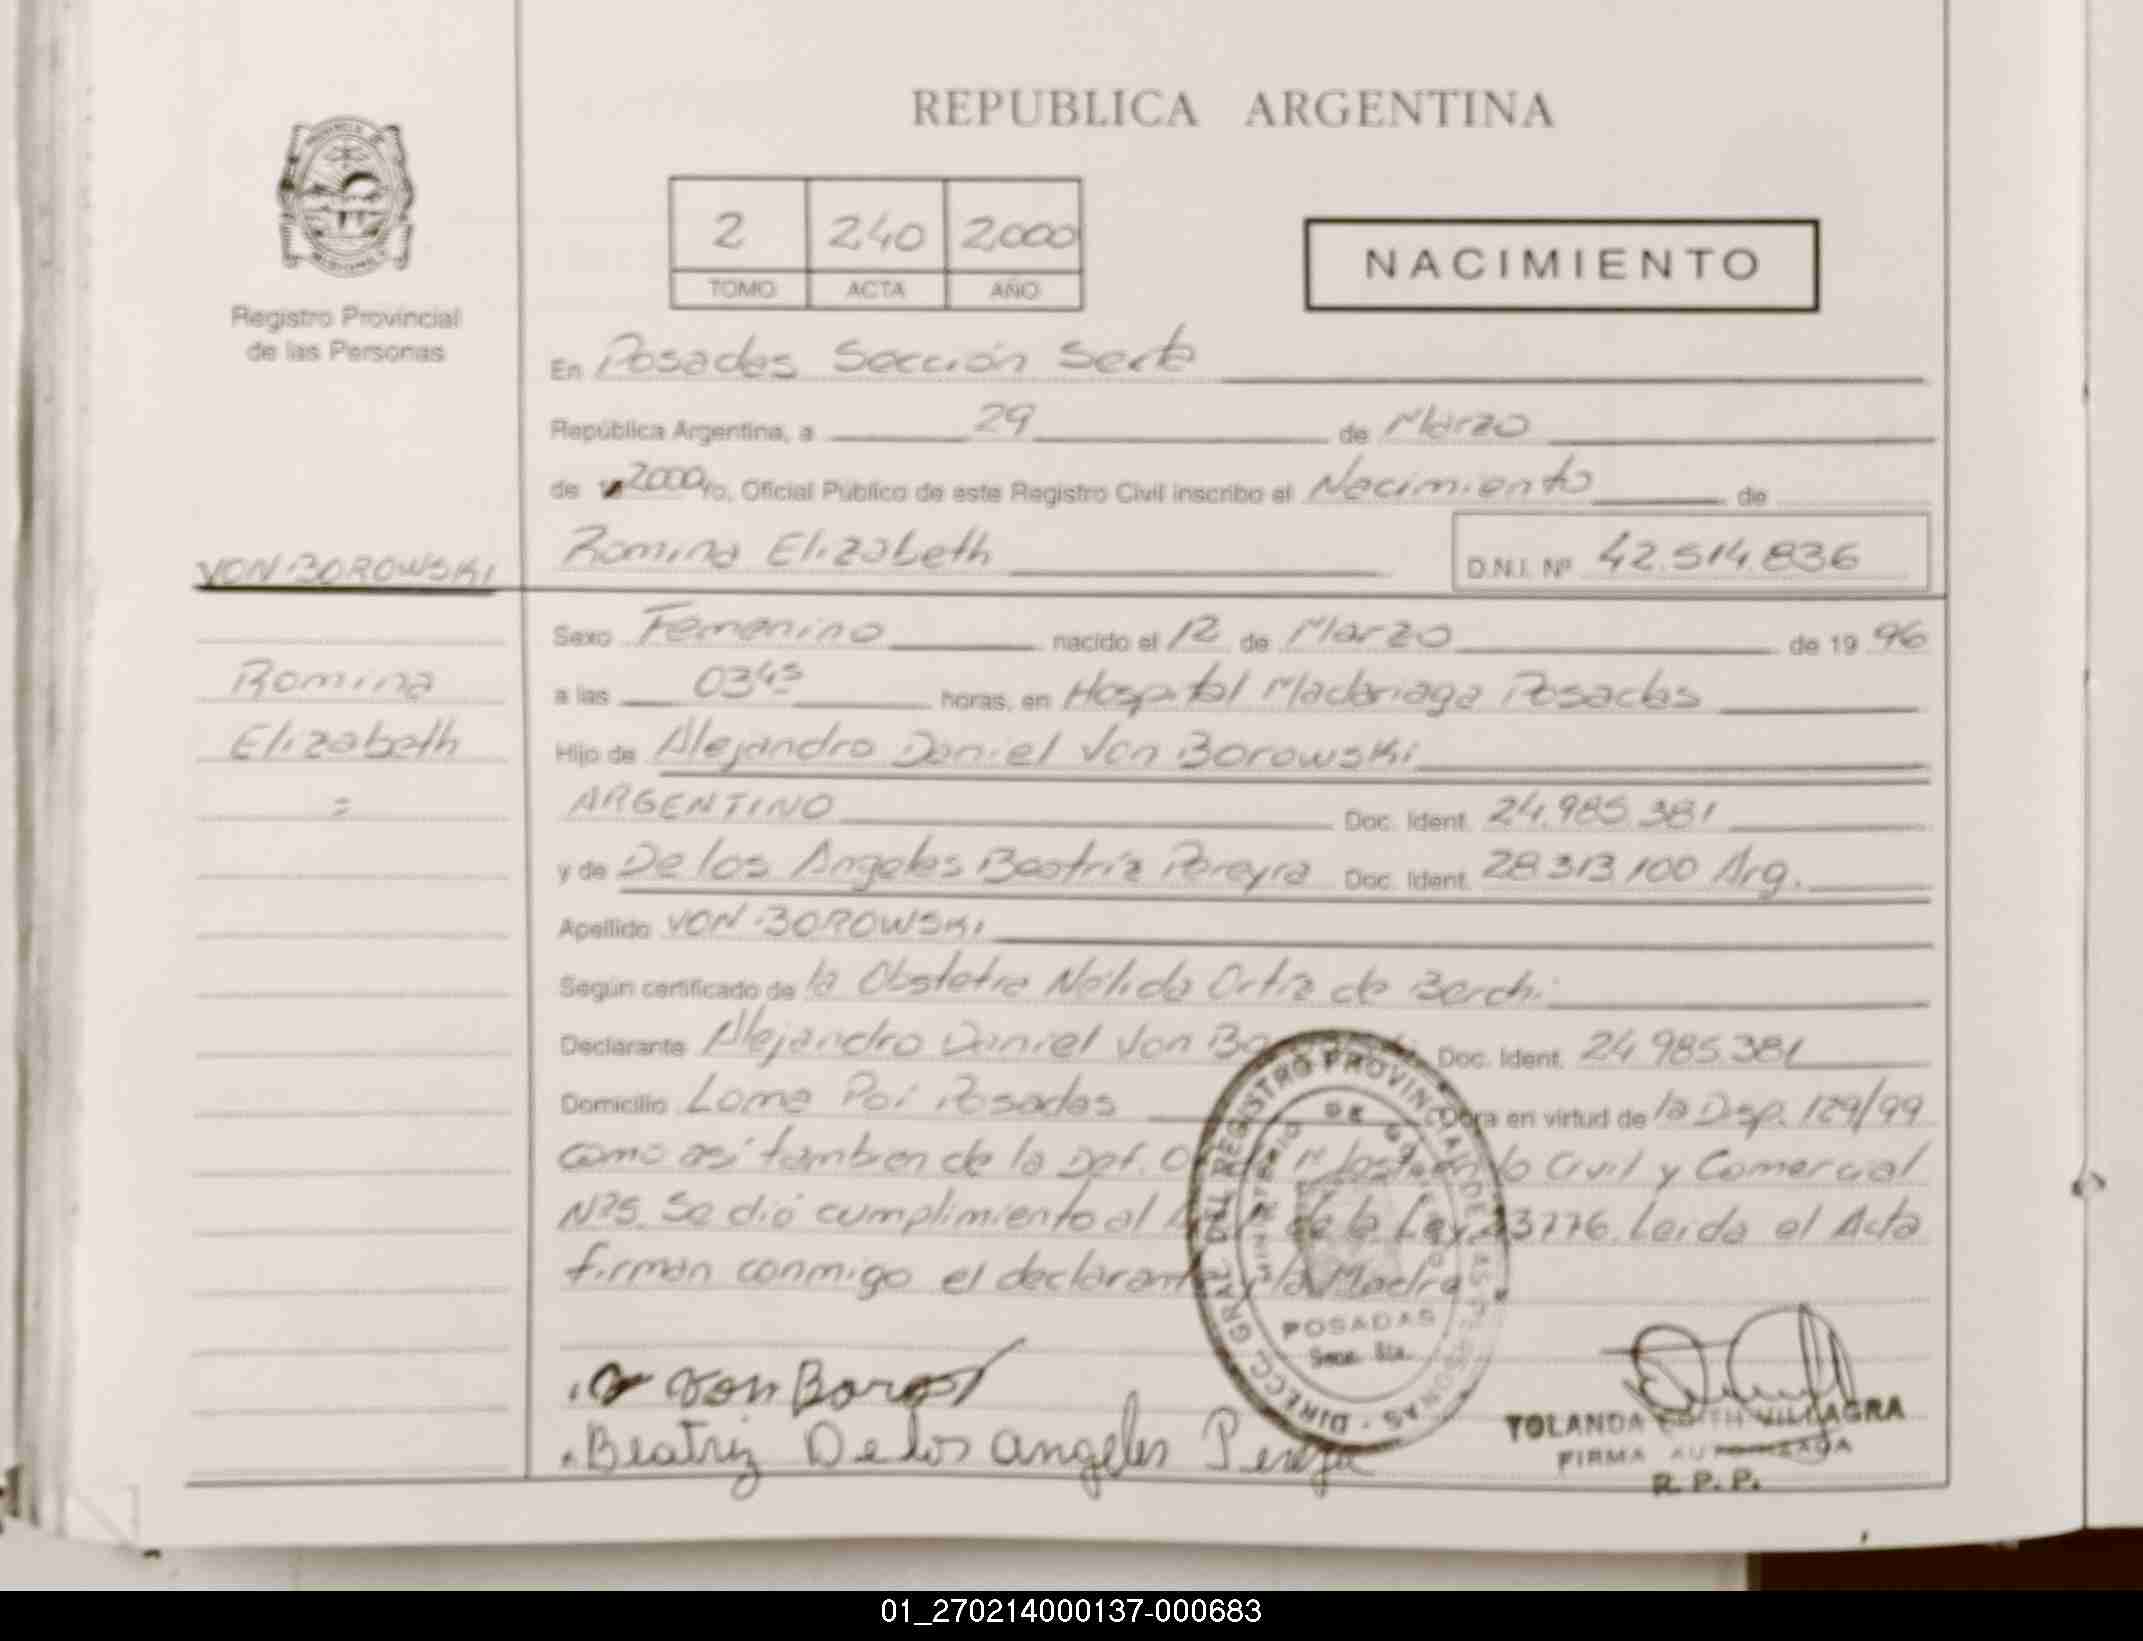 REPUBLICA ARGENTINA
2 240 2000
TOMO ACTA AÑO
NACIMIENTO
Registro Provincial
de las Personas
En Posadas Sección Sexta
República Argentina, a 29 de Marzo
de 2000 yo, Oficial Público de este Registro Civil inscribo el Nacimiento de
VON BOROWSKI
Romina Elizabeth D.N.I. Nº 42.514.836
Sexo Femenino nacido el 12 de Marzo de 19 96
Romina
a las 03 45 horas, en Hospital Madariaga Posadas
Elizabeth
Hijo de Alejandro Daniel Von Borowski
=
ARGENTINO Doc. Ident. 24.985.381
y de De los Angeles Beatríz Pereyra Doc. Ident. 28.313.100 Arg.
Apellido VON BOROWSKI
Según certificado de la Obstetra Nélida Ortíz de Berchi
Declarante Alejandro Daniel Von Doc. Ident. 24.985.381
Domicilio Loma Poi Posadas Obra en virtud de la Disp. 129/99
como así tambien de la Def. Civil y Comercial
Nº5. Se dió cumplimiento al de la Ley 23776. Leida el Acta
firman conmigo el declarante y la Madre
DIRECC. GRAL. DEL REGISTRO PROVINCIAL DE LAS PERSONAS
MINISTERIO DE GOBIERNO
POSADAS
Secc. 6ta.
Von Borows
Beatriz De los angeles Pereyra
YOLANDA EDITH VILLAGRA
FIRMA AUTORIZADA
R. P. P.
01_270214000137-000683